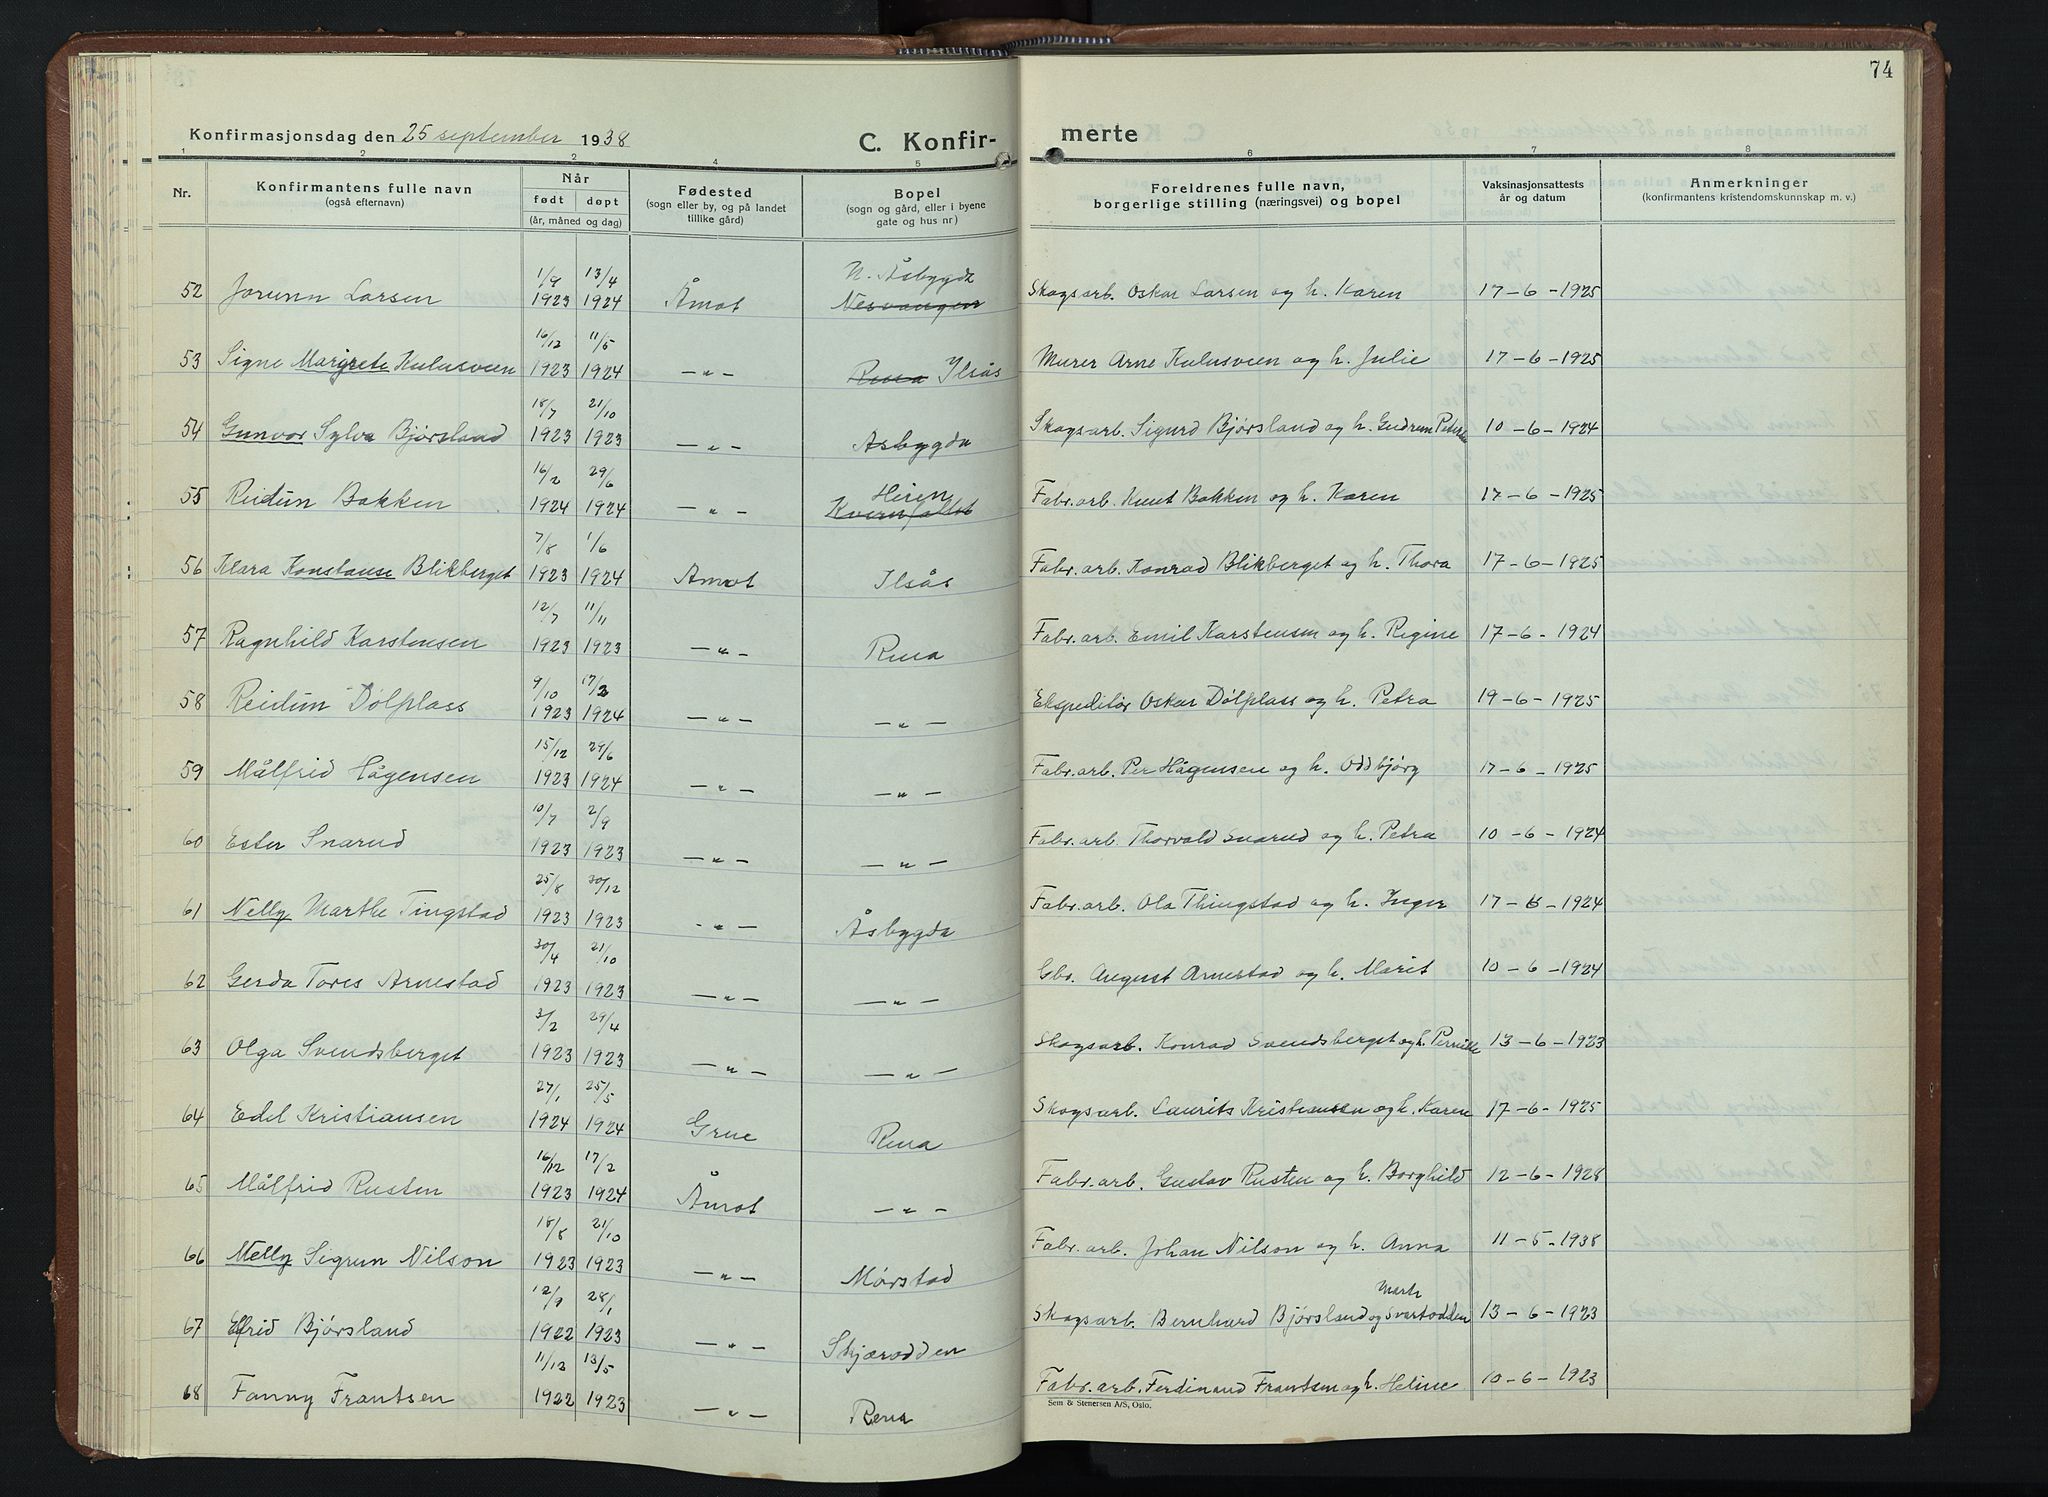 74
Konfirmasjonsdag den 25 september 1938
C. Konfir-
merte
1 2 2 4 5 6 7 8
Nr.
Konfirmantens fulle navn
(også efternavn)
Når
født døpt
(år, måned og dag)
Fødested
(sogn eller by, og på landet
tillike gård)
Bopel
(sogn og gård, eller i byene
gate og hus nr)
Foreldrenes fulle navn,
borgerlige stilling (næringsvei) og bopel
Vaksinasjonsattests
år og datum
Anmerkninger
(konfirmantens kristendomskunnskap m. v.)
1/9 13/4 N. Åsbygda
52 Jorunn Larsen 1923 1924 Åmot Nesvangen Skogsarb. Oskar Larsen og h. Karen 17-6-1925
16/12 11/5
53 Signe Margrete Kulusveen 1923 1924 -"- Rena Ilsås Murer Arne Kulusveen og h. Julie 17-6-1925
18/7 21/10
54 Gunvor Sylva Bjørsland 1923 1923 -"- Åsbygda Skogsarb. Sigurd Bjørsland og h. Gudrun 10-6-1924
16/2 29/6 Heren
55 Reidun Bakken 1924 1924 -"- Kvernfallet Fabr.arb. Knut Bakken og h. Karen 17-6-1925
7/8 1/6
56 Klara Konstanse Blikberget 1923 1924 Åmot Ilsås Fabr.arb. Konrad Blikberget og h. Thora 17-6-1925
12/7 11/11
57 Ragnhild Karstensen 1923 1923 -"- Rena Fabr.arb. Emil Karstensen og h. Regine 17-6-1924
9/10 17/2
58 Reidun Dølplass 1923 1924 -"- -"- Ekspeditør Oskar Dølplass og h. Petra 19-6-1925
15/12 29/6
59 Målfrid Hågensen 1923 1924 -"- -"- Fabr.arb. Per Hågensen og h. Oddbjørg 17-6-1925
10/7 2/9
60 Ester Snarud 1923 1923 -"- -"- Fabr.arb. Thorvald Snarud og h. Petra 10-6-1924
25/8 30/12
61 Nelly Marthe Tingstad 1923 1923 -"- Åsbygda Fabr.arb. Ola Thingstad og h. Inger 17-6-1924
30/4 21/10
62 Gerda Tores Arnestad 1923 1923 -"- -"- Gbr. August Arnestad og h. Marit 10-6-1924
3/2 29/4
63 Olga Svendsberget 1923 1923 -"- -"- Skogsarb. Konrad Svendsberget og h. Pernille 13-6-1923
27/1 25/5
64 Edel Kristiansen 1924 1924 Grue Rena Skogsarb. Laurits Kristiansen og h. Karen 17-6-1925
16/12 17/2
65 Målfrid Rusten 1923 1924 Åmot -"- Fabr.arb. Gustav Rusten og h. Borghild 12-6-1928
18/8 21/10
66 Nelly Sigrun Nilson 1923 1923 -"- Mørstad Fabr.arb. Johan Nilson og h. Anna 11-5-1938
12/9 28/1 Marte
67 Elfrid Bjørsland 1922 1923 -"- Skjærodden Skogsarb. Bernhard Bjørsland og Svartodden 13-6-1923
11/12 13/5
68 Fanny Frantsen 1922 1923 -"- Rena Fabr.arb. Ferdinand Frantsen og h. Heline 10-6-1923
Sem & Stenersen A/S, Oslo.